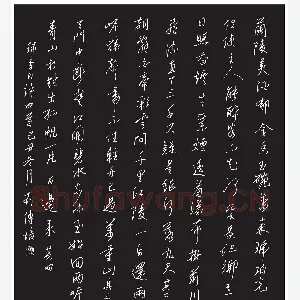 蘭陵美酒鬱金香玉碗盛來琥珀光
但使主人能醉客不知何處是他鄉
日照香爐生紫煙遙看瀑布掛前川
飛流直下三千尺疑是銀河落九天
朝辭白帝彩雲間千里江陵一日還兩岸
猿聲啼不住輕舟已過萬重山天
門中斷楚江開碧水東流至此回兩岸
青山相對出孤帆一片日邊來
錄李白詩四首己丑冬月
Shufawang.CN